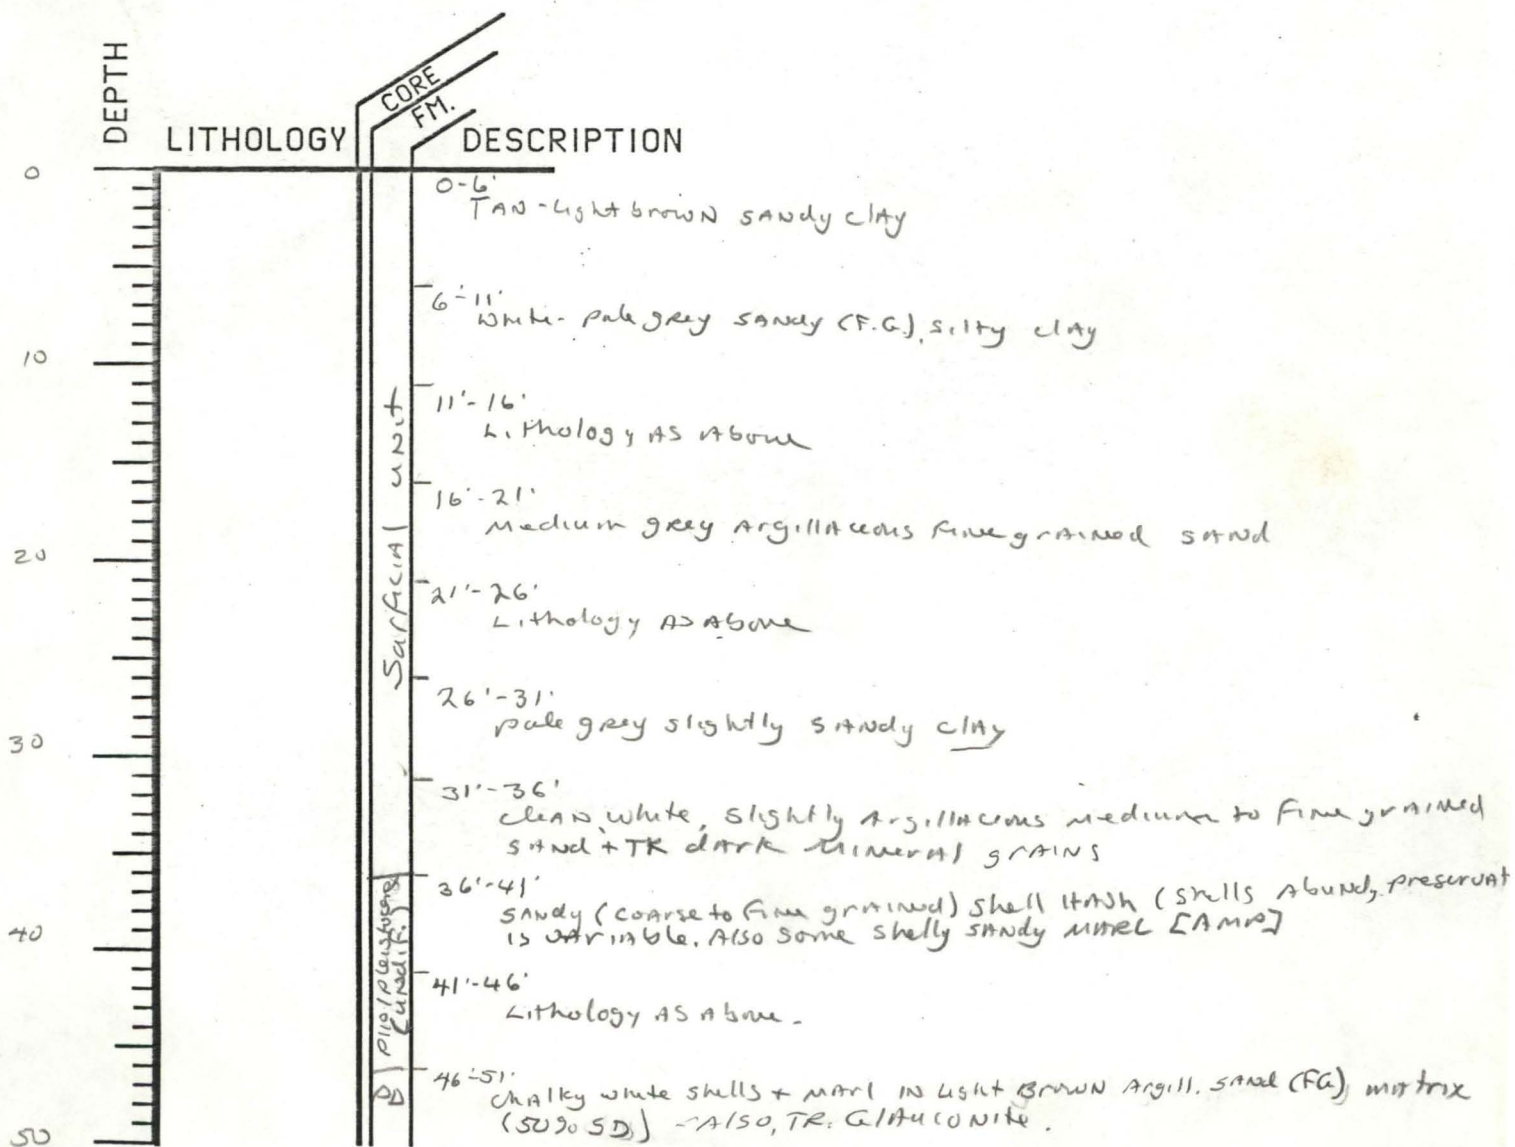 DEPTH
LITHOLOGY
CORE
FM.
DESCRIPTION
0
10
20
30
40
50
Surficial unit
Plio/Pleistocene
(undif.)
0-6'
TAN-light brown sandy clay
6-11'
white-pale grey sandy (F.G.), silty clay
11'-16'
Lithology AS Above
16'-21'
Medium grey Argillaceous fine grained sand
21'-26'
Lithology AS Above
26'-31'
pale grey slightly sandy clay
31'-36'
clean, white, slightly Argillaceous medium to fine grained
sand + TR dark mineral grains
36'-41'
Sandy (coarse to fine grained) shell HASH (shells Abund, preservat
is variable. Also some shelly sandy MARL
41'-46'
Lithology AS Above.
46'-51'
Chalky white shells + marl in light Brown Argill. sand (FG) matrix
(50% SD) - Also, TR. Glauconite.